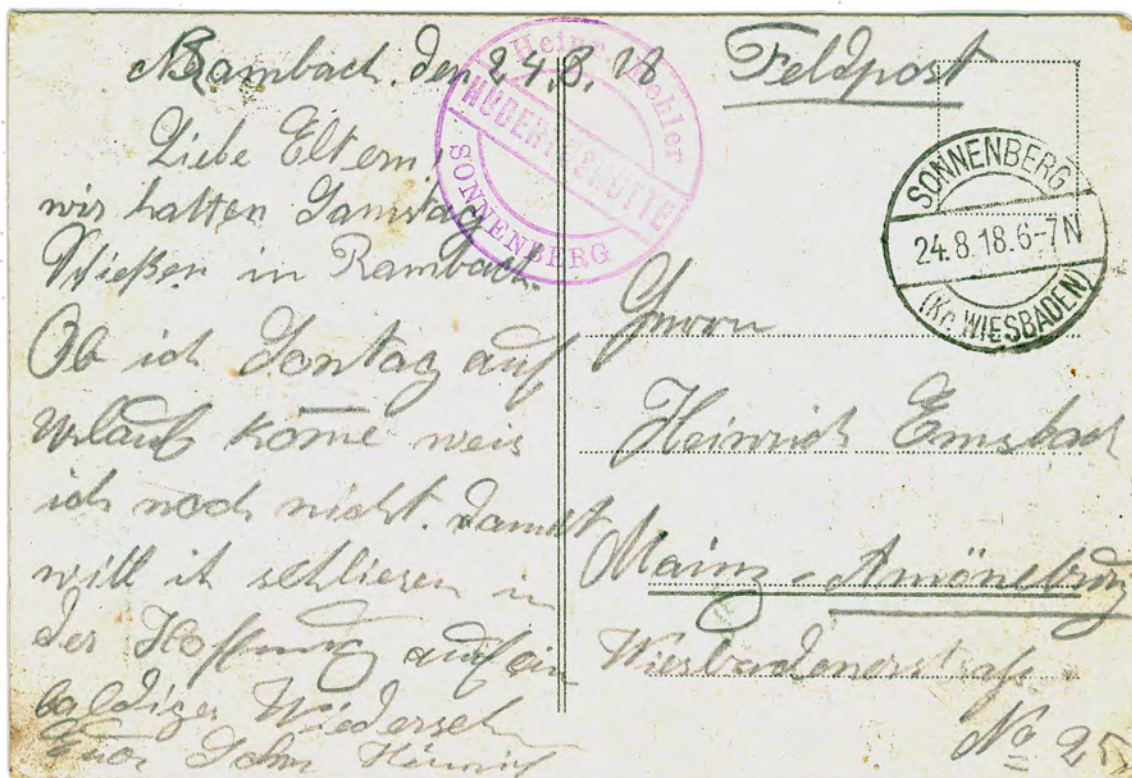 Rambach. den 24.8.18
Liebe Eltern,
wir hatten Samstag
Schießen in Rambach.
Ob ich Sontag auf
urlaub kom̄e weis
ich noch nicht. Damit
will ich schliesen in
der Hoffnung auf ein
baldiges Wiedersehn
Euer Sohn Heinrich
Heinr. Köhler
HUBERTUSHÜTTE
SONNENBERG
Feldpost
SONNENBERG
24.8.18.6-7N
(Kr. WIESBADEN)
Herrn
Heinrich Emsbach
Mainz-Amöneburg
Wiesbadenerstraße
No 25